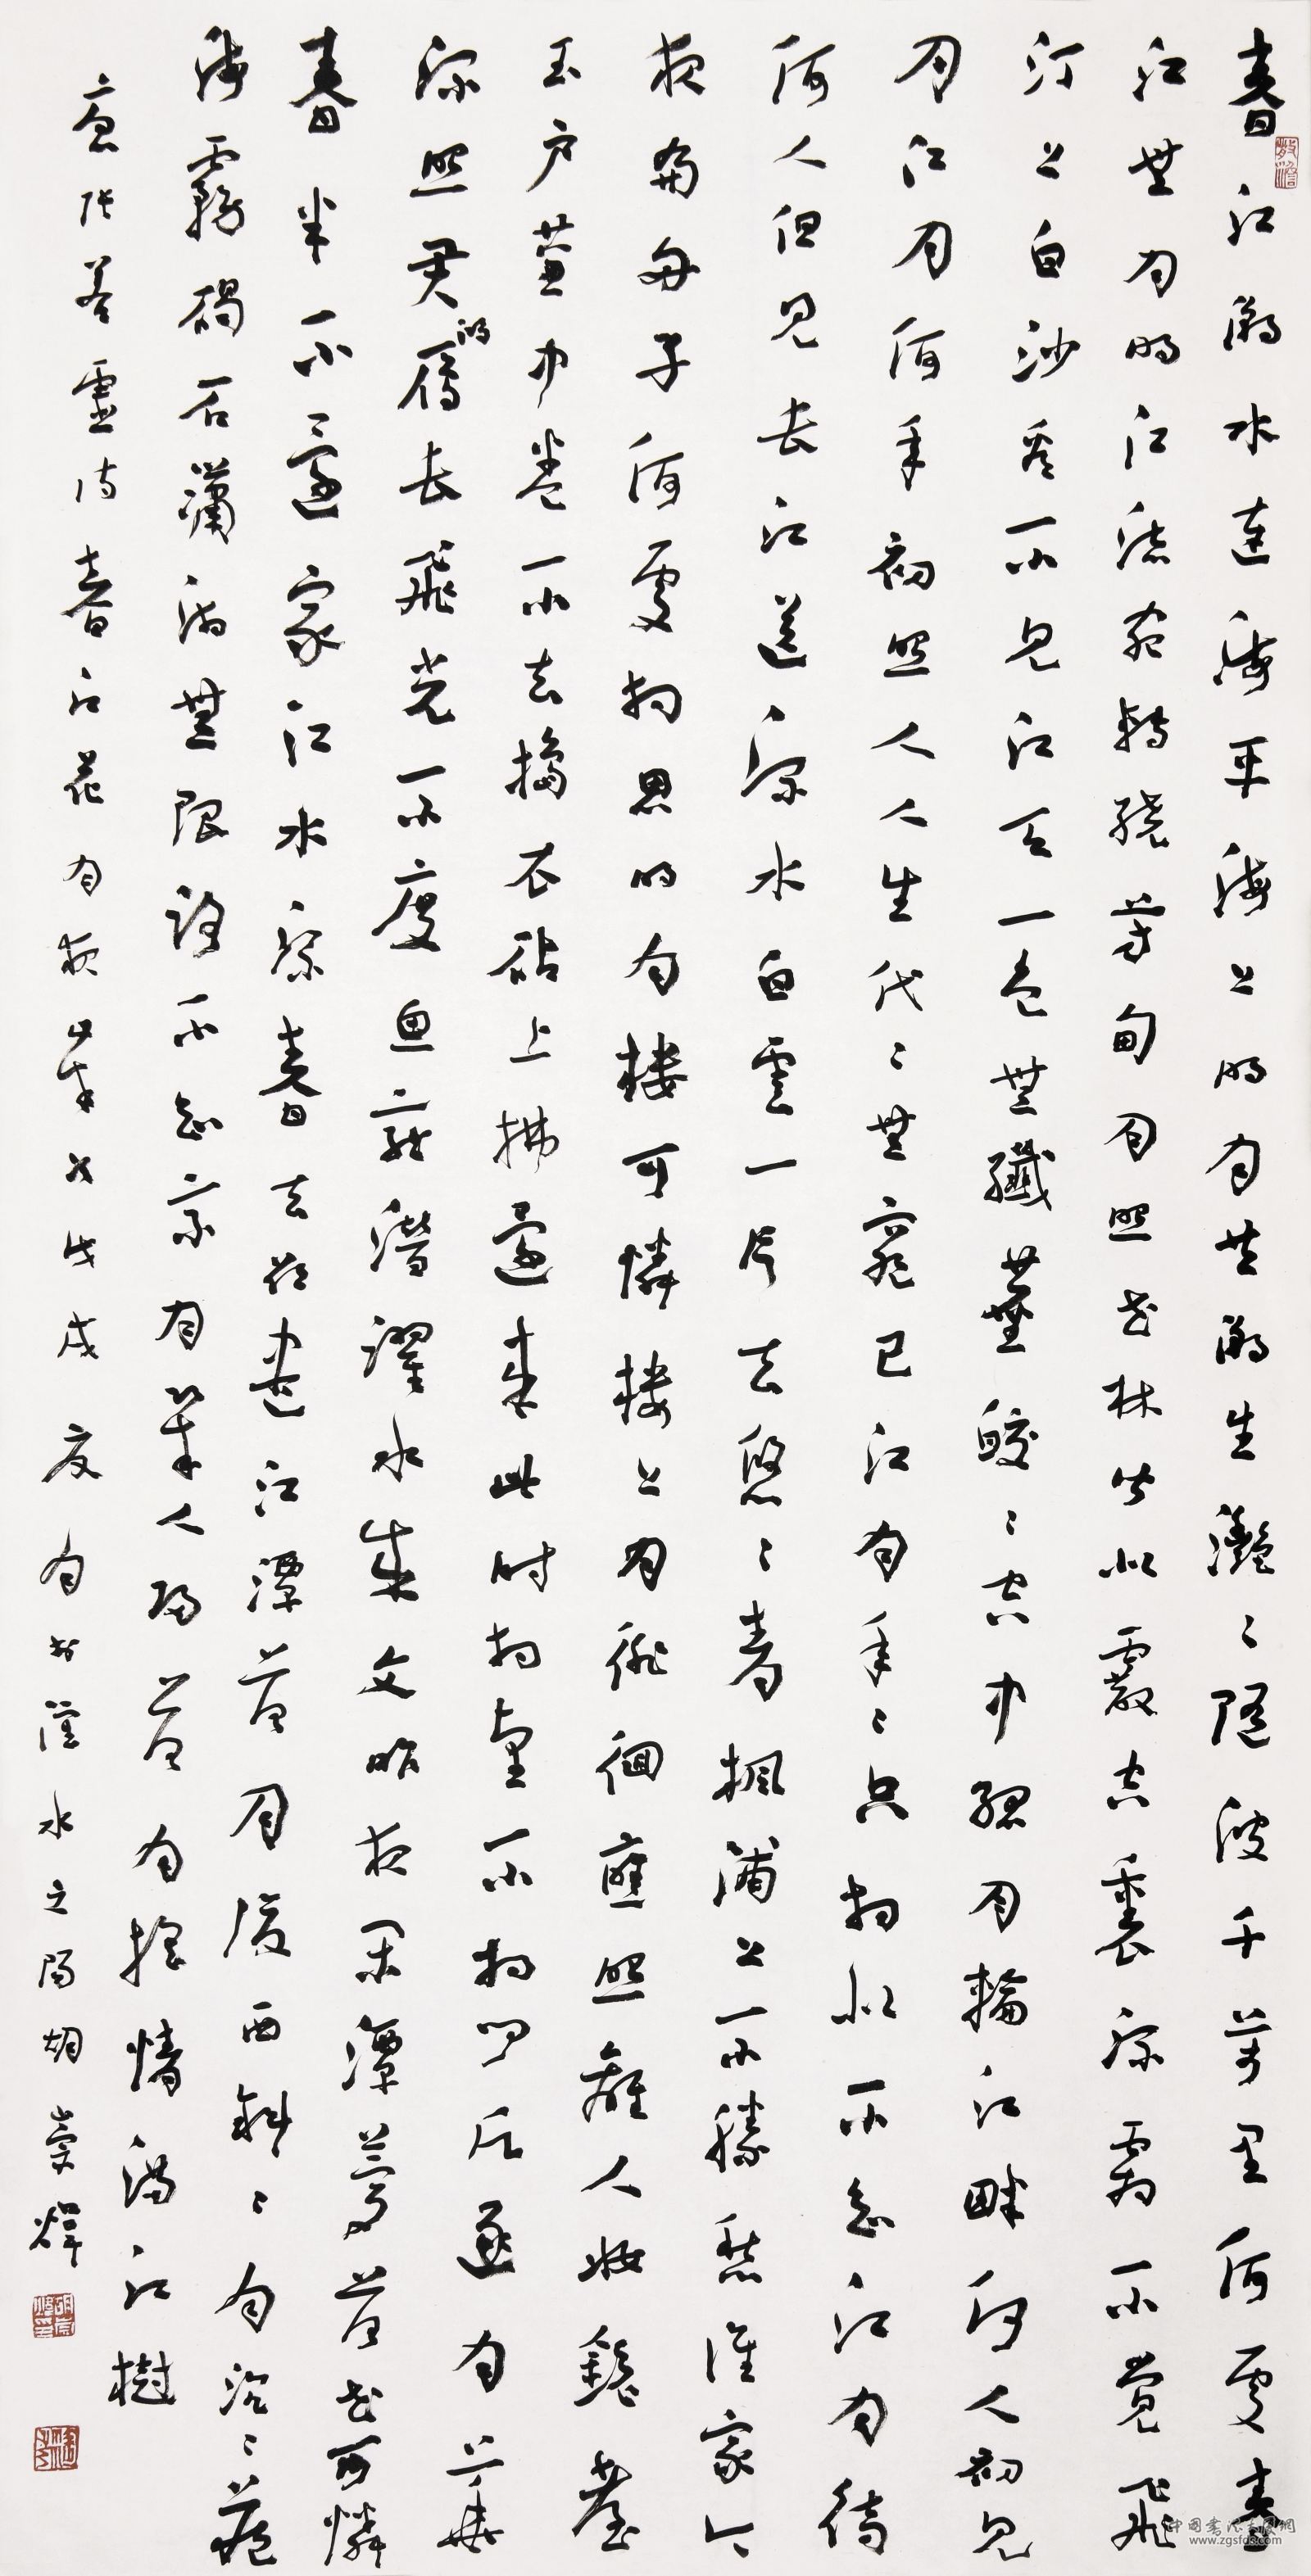 春江潮水連海平海上明月共潮生灩〻隨波千萬里何處春
江無月明江流宛轉繞芳甸月照花林皆似霰空裏流霜不覺飛
汀上白沙看不見江天一色無纖塵皎〻空中孤月輪江畔何人初見
月江月何年初照人人生代〻無窮已江月年〻只相似不知江月待
何人但見長江送流水白雲一片去悠〻青楓浦上不勝愁誰家今
夜扁舟子何處相思明月樓可憐樓上月徘徊應照離人妝鏡臺
玉戶簾中卷不去擣衣砧上拂還來此時相望不相聞願逐月華
流照君鴻雁長飛光不度魚龍潛躍水成文昨夜閑潭夢落花可憐
春半不還家江水流春去欲盡江潭落月復西斜〻月沉〻藏
海霧碣石瀟湘無限路不知乘月幾人歸落月搖情滿江樹
唐張若虛詩春江花月夜歲次戊戌夏月於渾水之陽胡崇煒
www.zgsfds.com